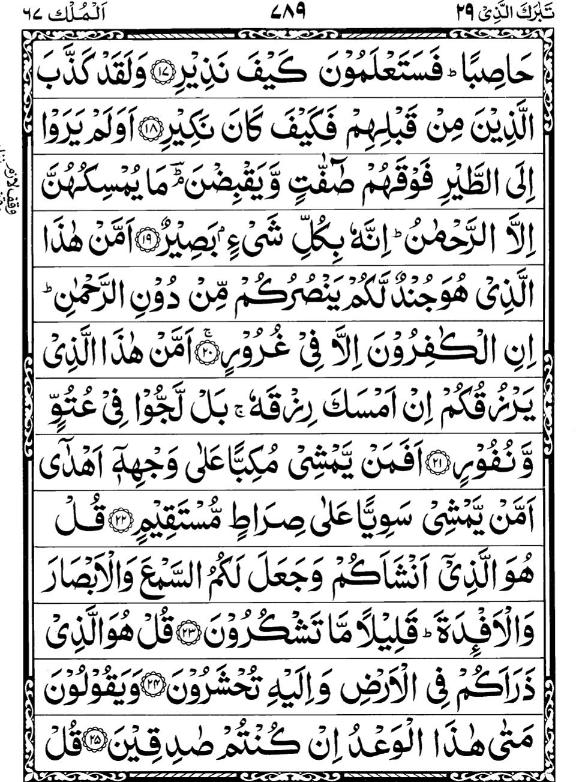 تَبٰرَكَ الَّذِیْ ۲۹ ۷۸۹ اَلْمُلْك ۶۷
حَاصِبًا ؕ فَسَتَعْلَمُوْنَ كَیْفَ نَذِیْرِ ﴿۱۷﴾ وَلَقَدْ كَذَّبَ
الَّذِیْنَ مِنْ قَبْلِهِمْ فَكَیْفَ كَانَ نَكِیْرِ ﴿۱۸﴾ اَوَلَمْ یَرَوْا
اِلَی الطَّیْرِ فَوْقَهُمْ صٰٓفّٰتٍ وَّیَقْبِضْنَ ؔۘؕ مَا یُمْسِكُهُنَّ
اِلَّا الرَّحْمٰنُ ؕ اِنَّهٗ بِكُلِّ شَیْءٍۭ بَصِیْرٌ ﴿۱۹﴾ اَمَّنْ هٰذَا
الَّذِیْ هُوَ جُنْدٌ لَّكُمْ یَنْصُرُكُمْ مِّنْ دُوْنِ الرَّحْمٰنِ ؕ
اِنِ الْكٰفِرُوْنَ اِلَّا فِیْ غُرُوْرٍ ۚ﴿۲۰﴾ اَمَّنْ هٰذَا الَّذِیْ
یَرْزُقُكُمْ اِنْ اَمْسَكَ رِزْقَهٗ ۚ بَلْ لَّجُّوْا فِیْ عُتُوٍّ
وَّنُفُوْرٍ ﴿۲۱﴾ اَفَمَنْ یَّمْشِیْ مُكِبًّا عَلٰی وَجْهِهٖۤ اَهْدٰۤی
اَمَّنْ یَّمْشِیْ سَوِیًّا عَلٰی صِرَاطٍ مُّسْتَقِیْمٍ ﴿۲۲﴾ قُلْ
هُوَ الَّذِیْۤ اَنْشَاَكُمْ وَجَعَلَ لَكُمُ السَّمْعَ وَالْاَبْصَارَ
وَالْاَفْـِٕدَةَ ؕ قَلِیْلًا مَّا تَشْكُرُوْنَ ﴿۲۳﴾ قُلْ هُوَ الَّذِیْ
ذَرَاَكُمْ فِی الْاَرْضِ وَاِلَیْهِ تُحْشَرُوْنَ ﴿۲۴﴾ وَیَقُوْلُوْنَ
مَتٰی هٰذَا الْوَعْدُ اِنْ كُنْتُمْ صٰدِقِیْنَ ﴿۲۵﴾ قُلْ
وقف لازم